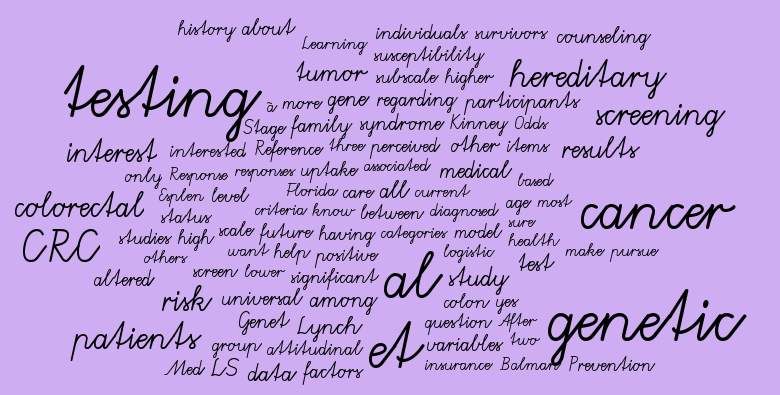 history about
Learning individuals survivors counseling
susceptibility
tumor subscale higher hereditary
testing ã more gene regarding participants screening
Stage family syndrome Kinney Odds
interest interested Reference three perceived other items results
only Response responses uptake associated medical based
colorectal Esplen level Florida care all current age most cancer
status criteria know between diagnosed sure
CRC studies high scale future having categories model health
others want help positive logistic test make pursue
altered screen lower significant al study
risk universal among colon yes
patients Genet Lynch question After genetic
group attitudinal et variables two
Med LS data factors insurance Balman Prevention